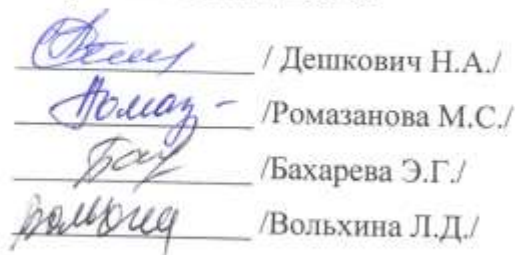 / Дешкович Н.А./
/Ромазанова М.С./
/Бахарева Э.Г./
/Вольхина Л.Д./